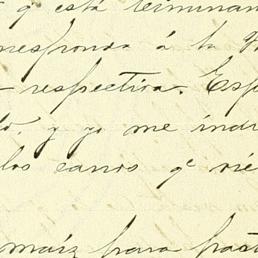 q está terminan
rresponda á la
respectiva. Esp
y yo me indi
los carros q vie
maiz para past